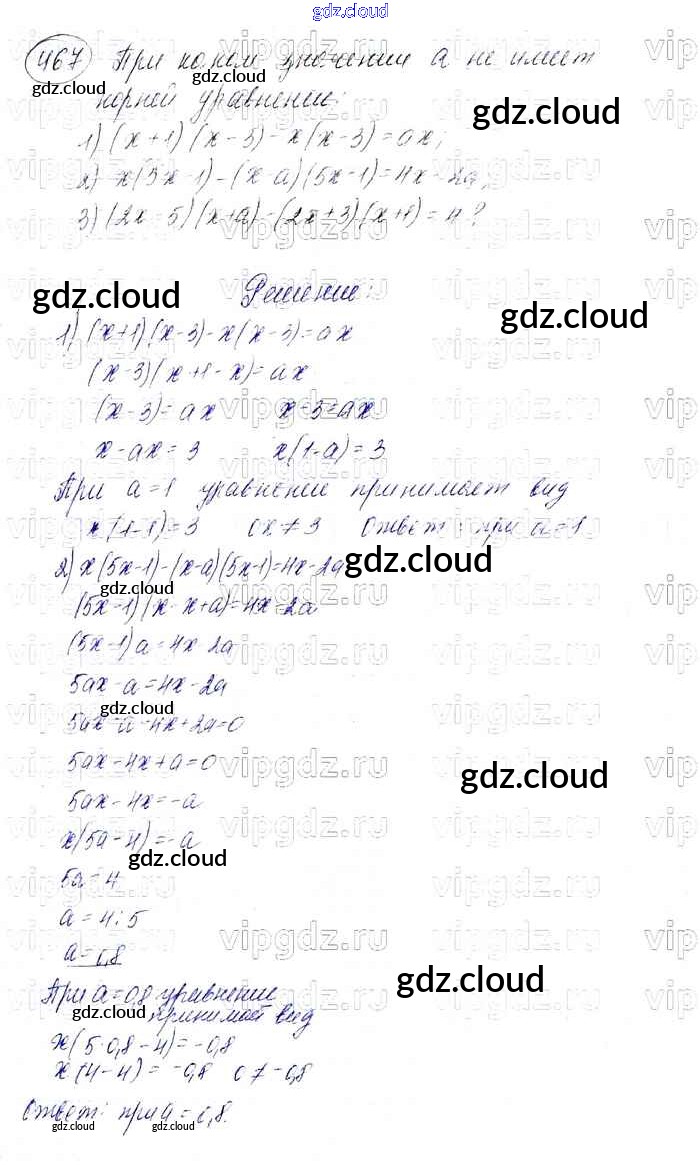 gdz.cloud
467 При каком значении a не имеет
корней уравнение:
1) (x+1)(x-3)-x(x-3)=ax;
2) x(5x-1)-(x-a)(5x-1)=4x-2a;
3) (2x-5)(x+a)-(2x+3)(x+1)=4?
Решение:
1) (x+1)(x-3)-x(x-3)=ax
(x-3)(x+1-x)=ax
(x-3)=ax x-3=ax
x-ax=3 x(1-a)=3
При a=1 уравнение принимает вид
x(1-1)=3 0x≠3 Ответ: при a=1
2) x(5x-1)-(x-a)(5x-1)=4x-2a
(5x-1)(x-x+a)=4x-2a
(5x-1)a=4x-2a
5ax-a=4x-2a
5ax-a-4x+2a=0
5ax-4x+a=0
5ax-4x=-a
x(5a-4)=-a
5a=4
a=4:5
a=0,8
При a=0,8 уравнение
принимает вид
x(5·0,8-4)=-0,8
x(4-4)=-0,8 0≠-0,8
Ответ: при a=0,8.
gdz.cloud gdz.cloud